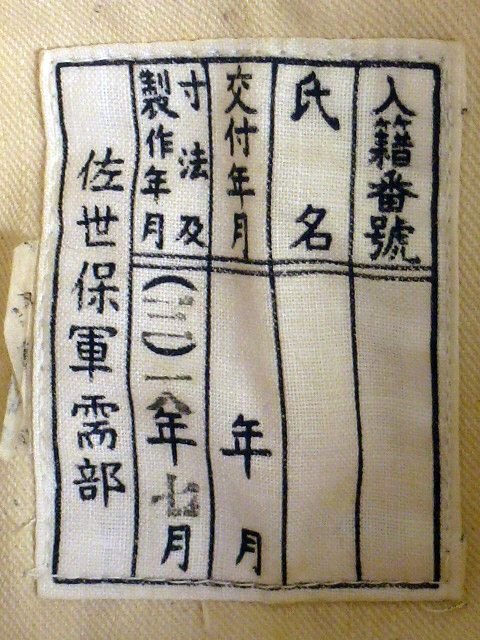 入籍番號
氏名
交付年月
年 月
寸法及
製作年月
(三)一八年七月
佐世保軍需部